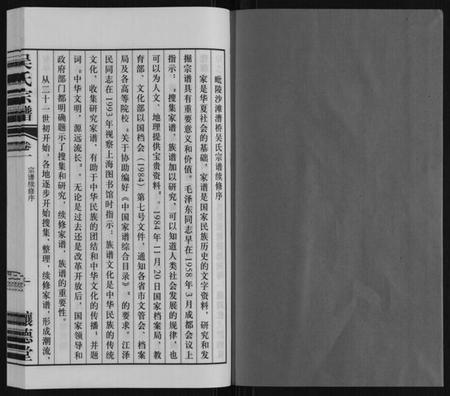 毗陵沙滩漕桥吴氏宗谱续修序
家是华夏社会的基础，家谱是国家民族历史的文字资料，研究和发
掘宗谱具有重要意义和价值。毛泽东同志早在1958年3月成都会议上
指示：“搜集家谱，族谱加以研究，可以知道人类社会发展的规律，也
可以为人文、地理提供宝贵资料。”1984年11月20日国家档案局，教
育部，文化部以国档会（1984）第七号文件，通知各省市文管会，档案
局及各高等院校，“关于协助编好《中国家谱综合目录》”的要求。江泽
民同志在1993年视察上海图书馆时指示：族谱文化是中华民族的传统
文化，收集研究家谱，有助于中华民族的团结和中华文化的传播，并题
词“中华文明，源远流长”。无论是过去还是改革开放后，国家领导和
政府部门都明确题示了搜集和研究，续修家谱，族谱的重要性。
从二十一世初开始，各地逐步开始搜集、整理、续修家谱，形成潮流，
吴氏宗谱
卷一
宗谱续修序
让德堂